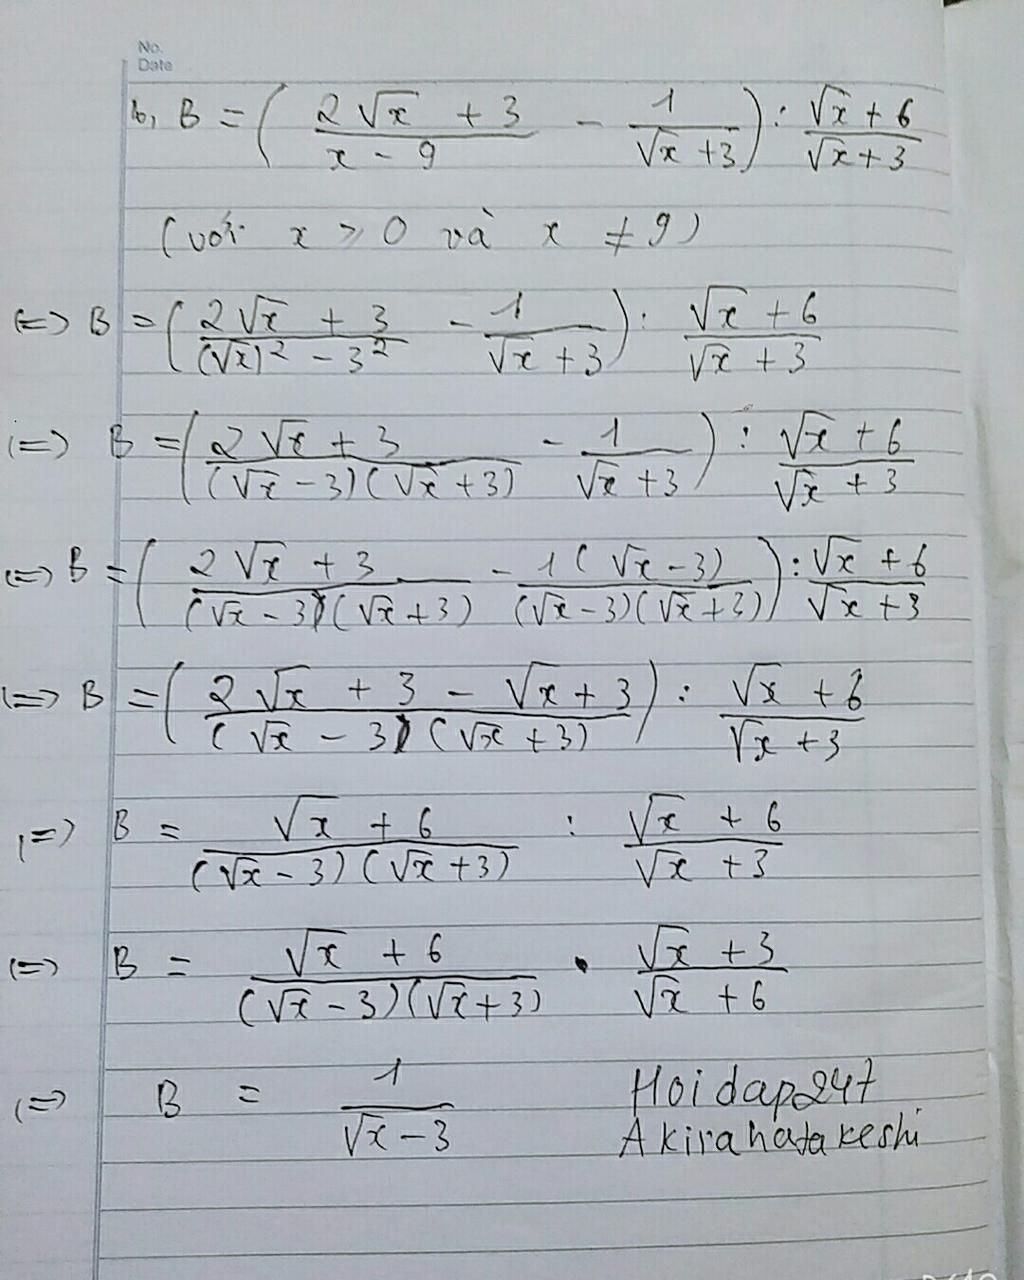 No.
Date
b, B = ( (2√x + 3)/(x - 9) - 1/(√x + 3) ) : (√x + 6)/(√x + 3)
(với x ⩾ 0 và x ≠ 9)
<=> B = ( (2√x + 3)/((√x)² - 3²) - 1/(√x + 3) ) : (√x + 6)/(√x + 3)
<=> B = ( (2√x + 3)/((√x - 3)(√x + 3)) - 1/(√x + 3) ) : (√x + 6)/(√x + 3)
<=> B = ( (2√x + 3)/((√x - 3)(√x + 3)) - 1(√x - 3)/((√x - 3)(√x + 3)) ) : (√x + 6)/(√x + 3)
<=> B = ( (2√x + 3 - √x + 3)/((√x - 3)(√x + 3)) ) : (√x + 6)/(√x + 3)
<=> B = (√x + 6)/((√x - 3)(√x + 3)) : (√x + 6)/(√x + 3)
<=> B = (√x + 6)/((√x - 3)(√x + 3)) . (√x + 3)/(√x + 6)
<=> B = 1/(√x - 3) Hoidap247
Akirahatakeshi